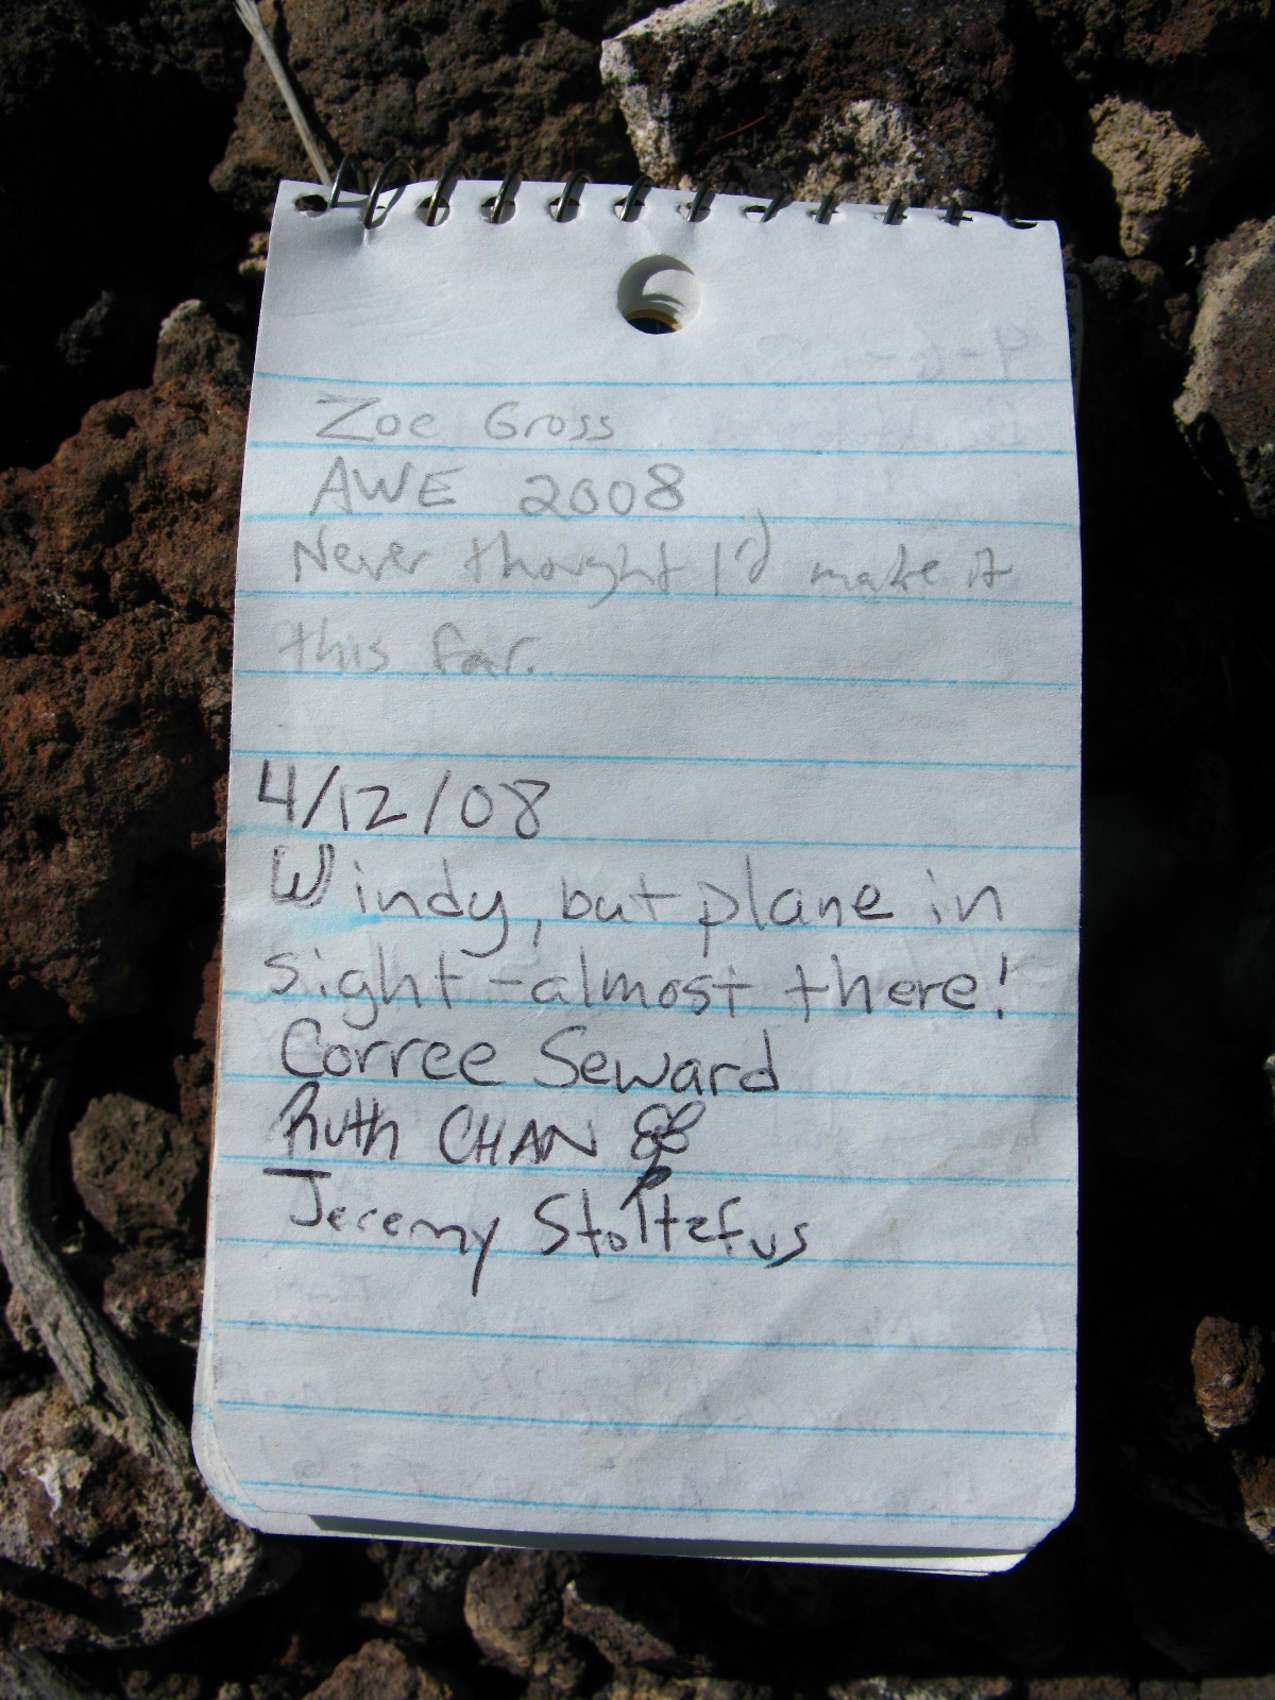 Zoe Gross
AWE 2008
Never thought I'd make it
this far.
4/12/08
Windy, but plane in
sight - almost there!
Corree Seward
Ruth CHAN
Jeremy Stoltzfus